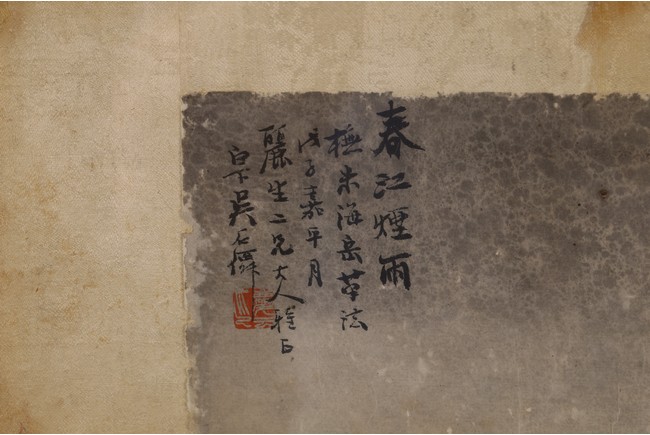 春江煙雨
橅米海岳華法
戊子嘉平月
麗生二兄大人雅正
白下吳石僊